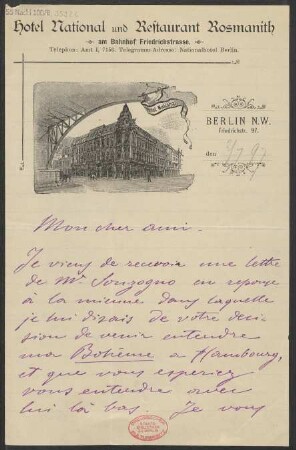 Hotel National und Restaurant Rosmanith
am Bahnhof Friedrichstrasse.
Telephon: Amt I, 7150. Telegramm-Adresse: Nationalhotel Berlin.
BERLIN N.W.
Friedrichstr. 97.
den
Mon cher ami.
Je viens de recevoir une lettre
de Mr. Sonzogno en reponse
à la mienne dans laquelle
je lui disais de votre deci-
sion de venir entendre
ma Bohème a Hambourg,
et que vous esperiez
vous entendre avec
lui là bas. Je vous